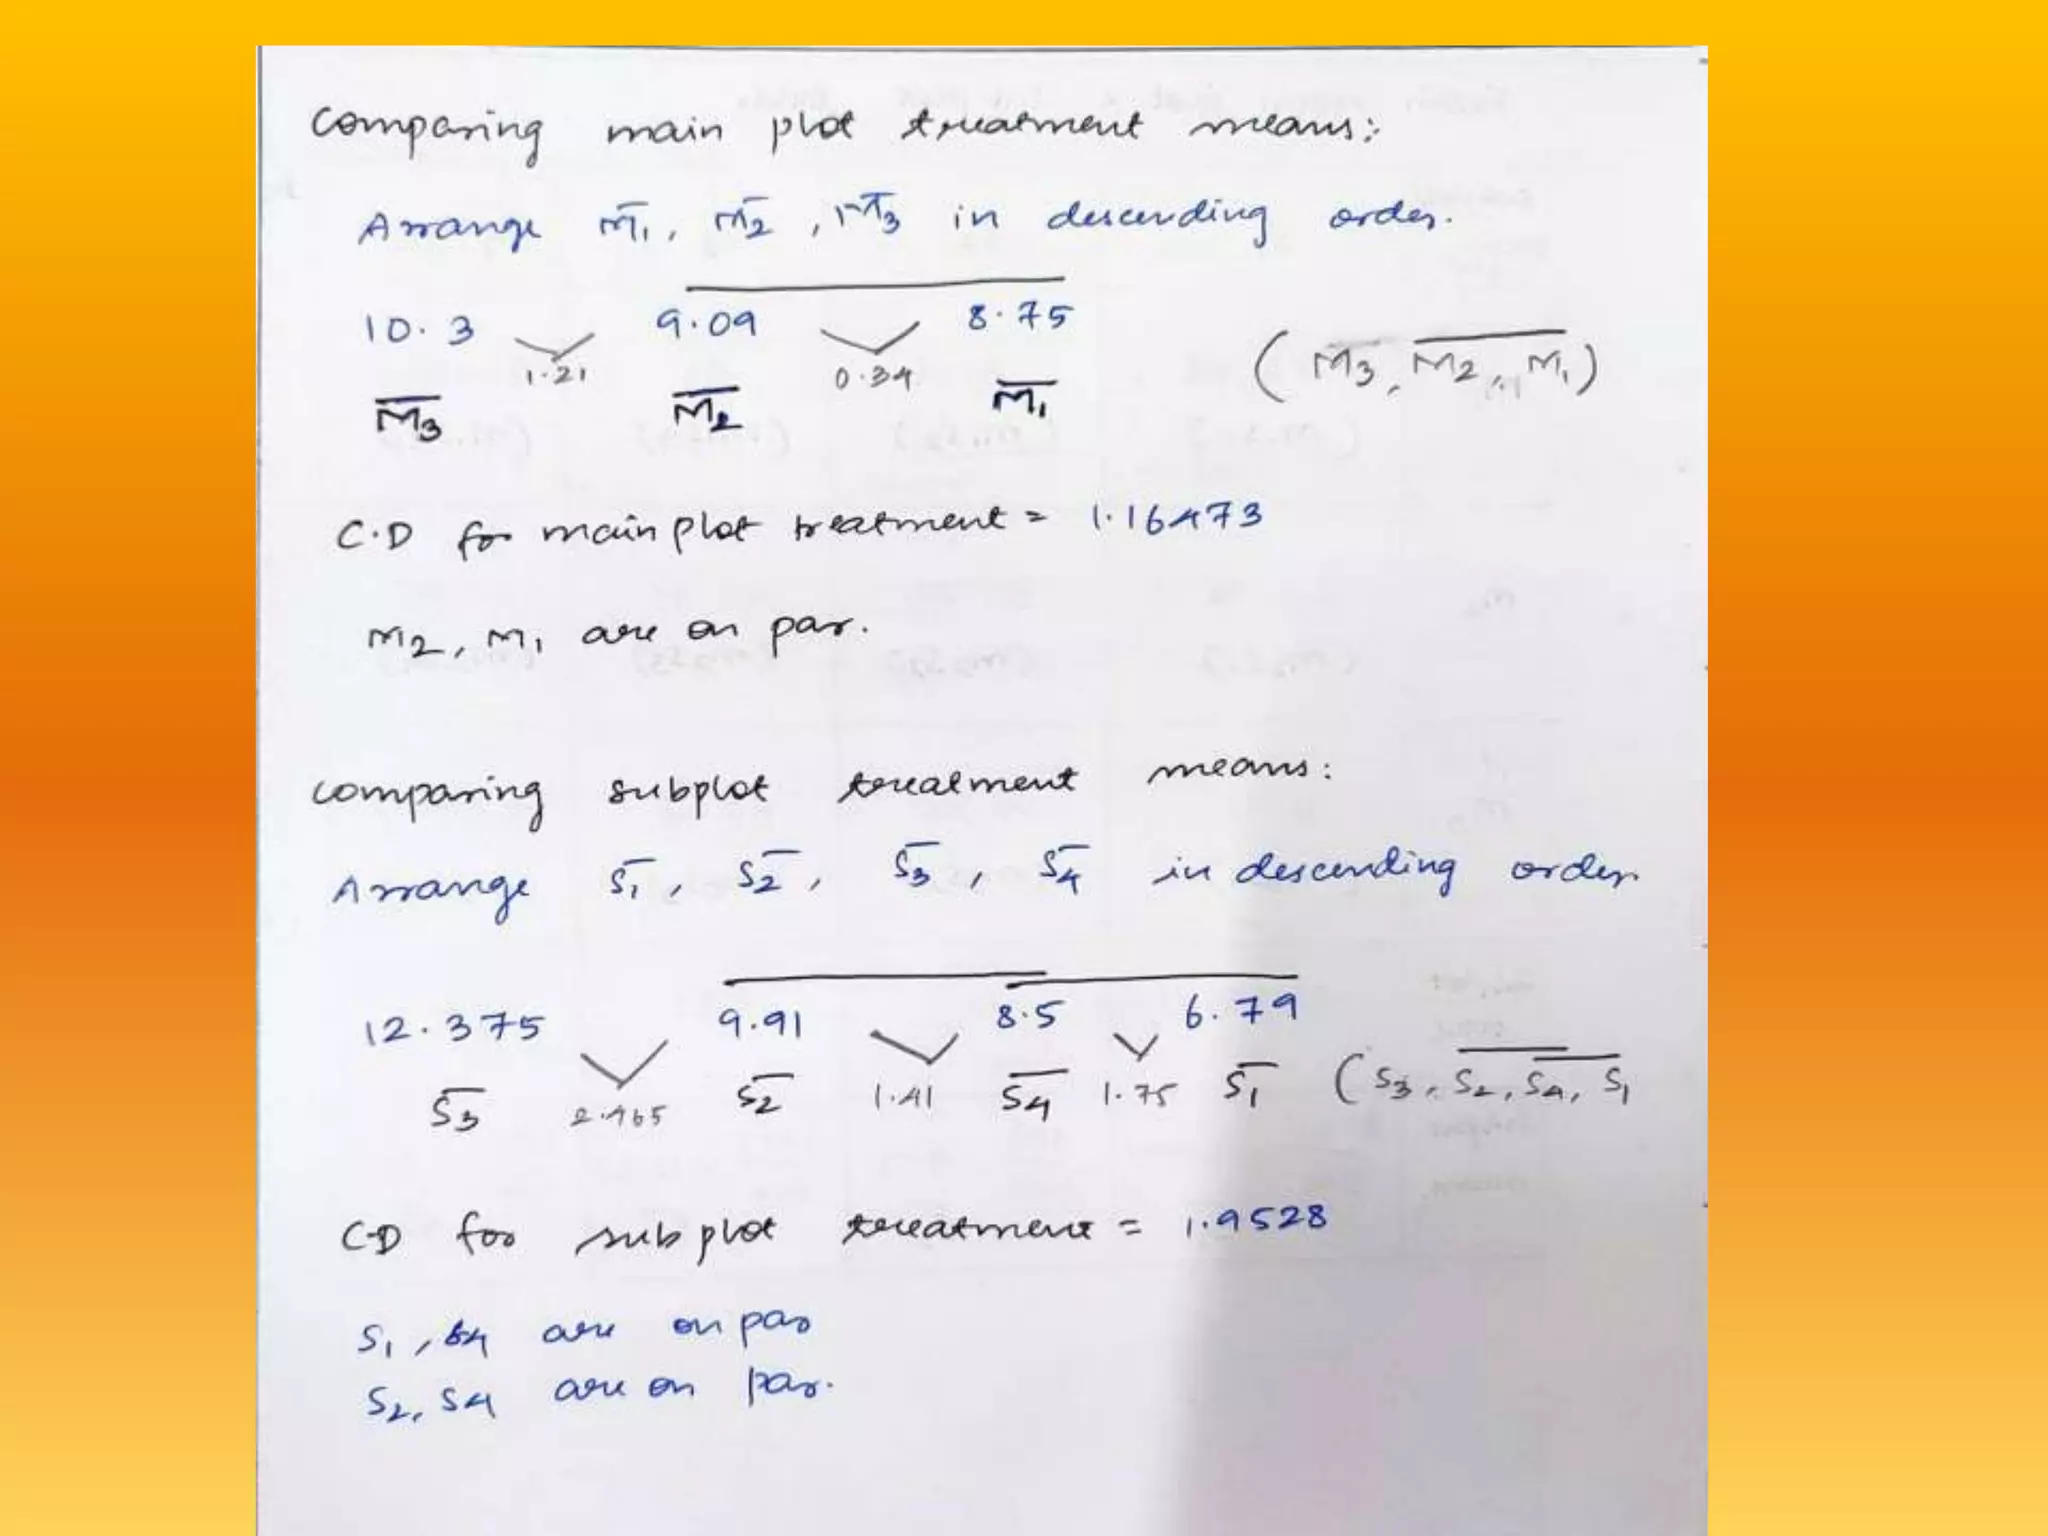 Comparing main plot treatment means:
Arrange M̅1, M̅2, M̅3 in descending order.
10.3 9.09 8.75
1.21 0.34
M̅3 M̅2 M̅1 (M3, M2, M1)
C.D for main plot treatment = 1.16473
M2, M1 are on par.
Comparing subplot treatment means:
Arrange S̅1, S̅2, S̅3, S̅4 in descending order.
12.375 9.91 8.5 6.79
S̅3 2.465 S̅2 1.41 S̅4 1.75 S̅1 (S3, S2, S4, S1
C.D for subplot treatment = 1.9528
S1, S4 are on par
S2, S4 are on par.